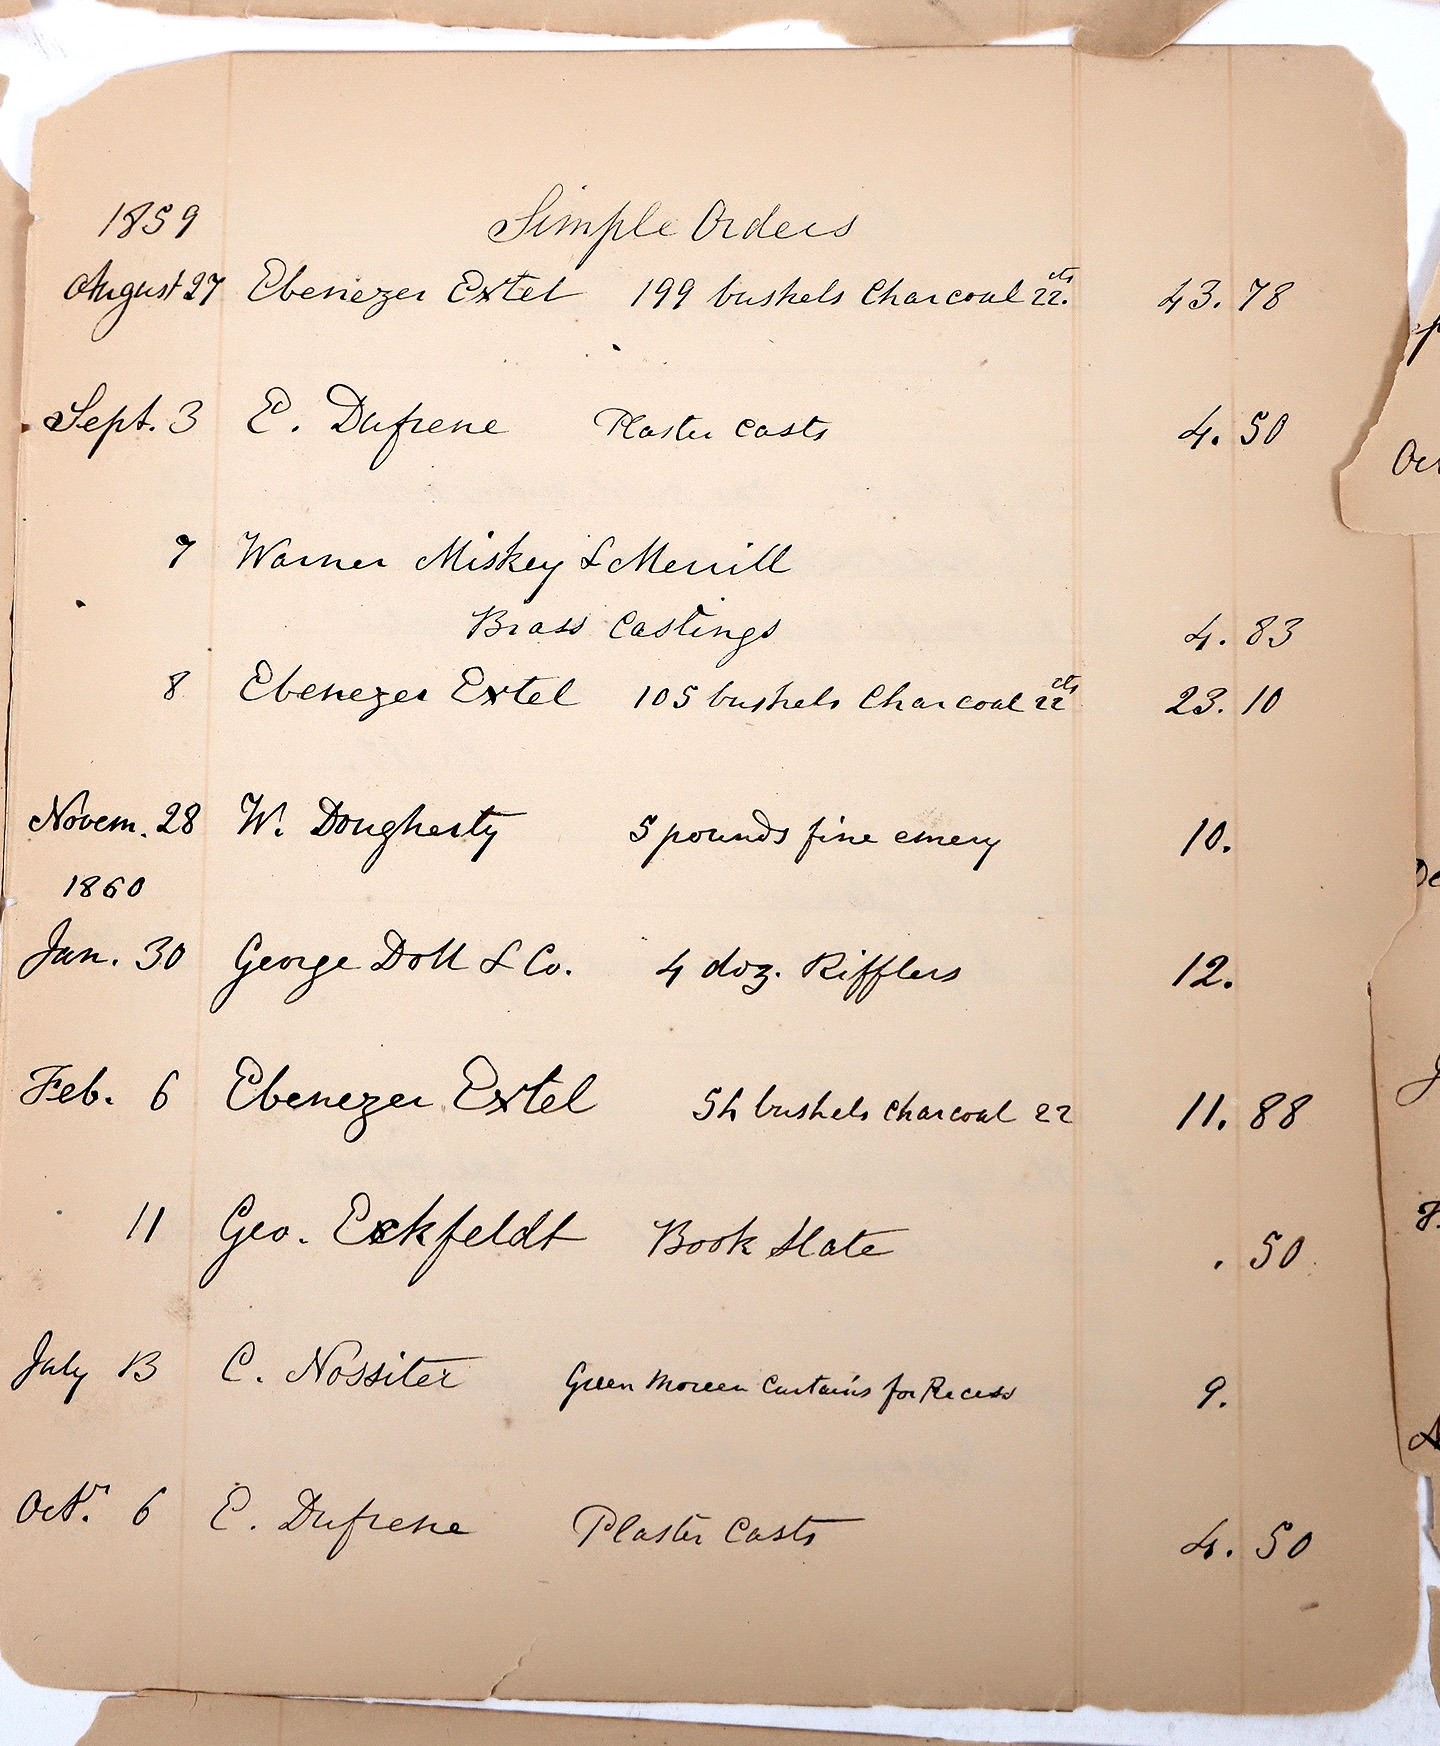 1859 Simple Orders
August 27 Ebenezer Extel 199 bushels Charcoal 22 cts. 43. 78
Sept. 3 E. Dufrene Plaster Casts 4. 50
7 Warner Miskey & Merrill
Brass Castings 4. 83
8 Ebenezer Extel 105 bushels Charcoal 22 cts 23. 10
Novem. 28 W. Dougherty 5 pounds fine emery 10.
1860
Jan. 30 George Doll & Co. 4 doz. Rifflers 12.
Feb. 6 Ebenezer Extel 54 bushels charcoal 22 11. 88
11 Geo. Eckfeldt Book Slate . 50
July 13 C. Nossiter Green Moreen Curtains for Recess 9.
Octr. 6 E. Dufrene Plaster Casts 4. 50